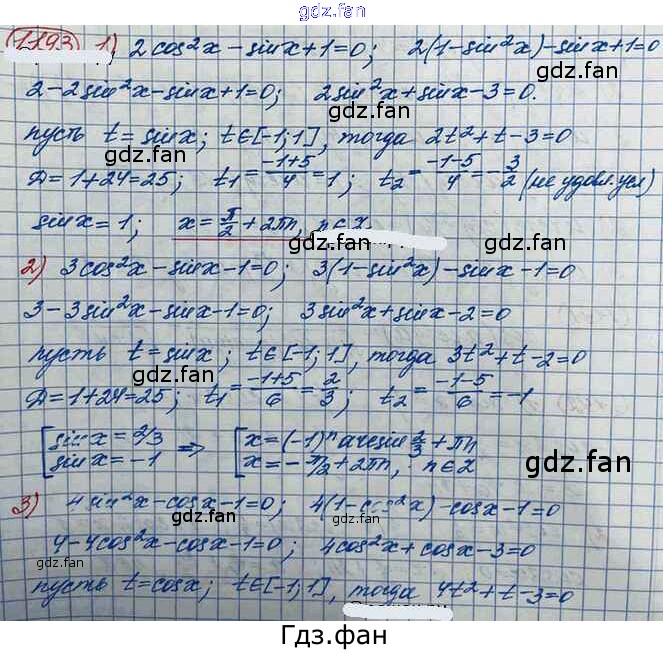 gdz.fan
gdz.fan
1193 1) 2cos²x - sinx + 1 = 0; 2(1-sin²x) - sinx + 1 = 0
gdz.fan gdz.fan
2 - 2sin²x - sinx + 1 = 0; 2sin²x + sinx - 3 = 0.
пусть t = sinx; t∈[-1;1], тогда 2t² + t - 3 = 0
gdz.fan gdz.fan
Д = 1+24 = 25; t₁ = (-1+5)/4 = 1; t₂ = (-1-5)/4 = -3/2 (не удовл. усл)
sinx = 1; x = π/2 + 2πn, n∈Z
gdz.fan gdz.fan
2) 3cos²x - sinx - 1 = 0; 3(1-sin²x) - sinx - 1 = 0
gdz.fan gdz.fan
3 - 3sin²x - sinx - 1 = 0; 3sin²x + sinx - 2 = 0
пусть t = sinx; t∈[-1;1], тогда 3t² + t - 2 = 0
gdz.fan gdz.fan
Д = 1+24 = 25; t₁ = (-1+5)/6 = 2/3; t₂ = (-1-5)/6 = -1
[sinx = 2/3 ⇒ [x = (-1)ⁿ arcsin 2/3 + πn
sinx = -1 x = -π/2 + 2πn, n∈Z
gdz.fan gdz.fan
3) 4sin²x - cosx - 1 = 0; 4(1-cos²x) - cosx - 1 = 0
gdz.fan gdz.fan
4 - 4cos²x - cosx - 1 = 0; 4cos²x + cosx - 3 = 0
gdz.fan gdz.fan
пусть t = cosx; t∈[-1;1], тогда 4t² + t - 3 = 0
Гдз.фан